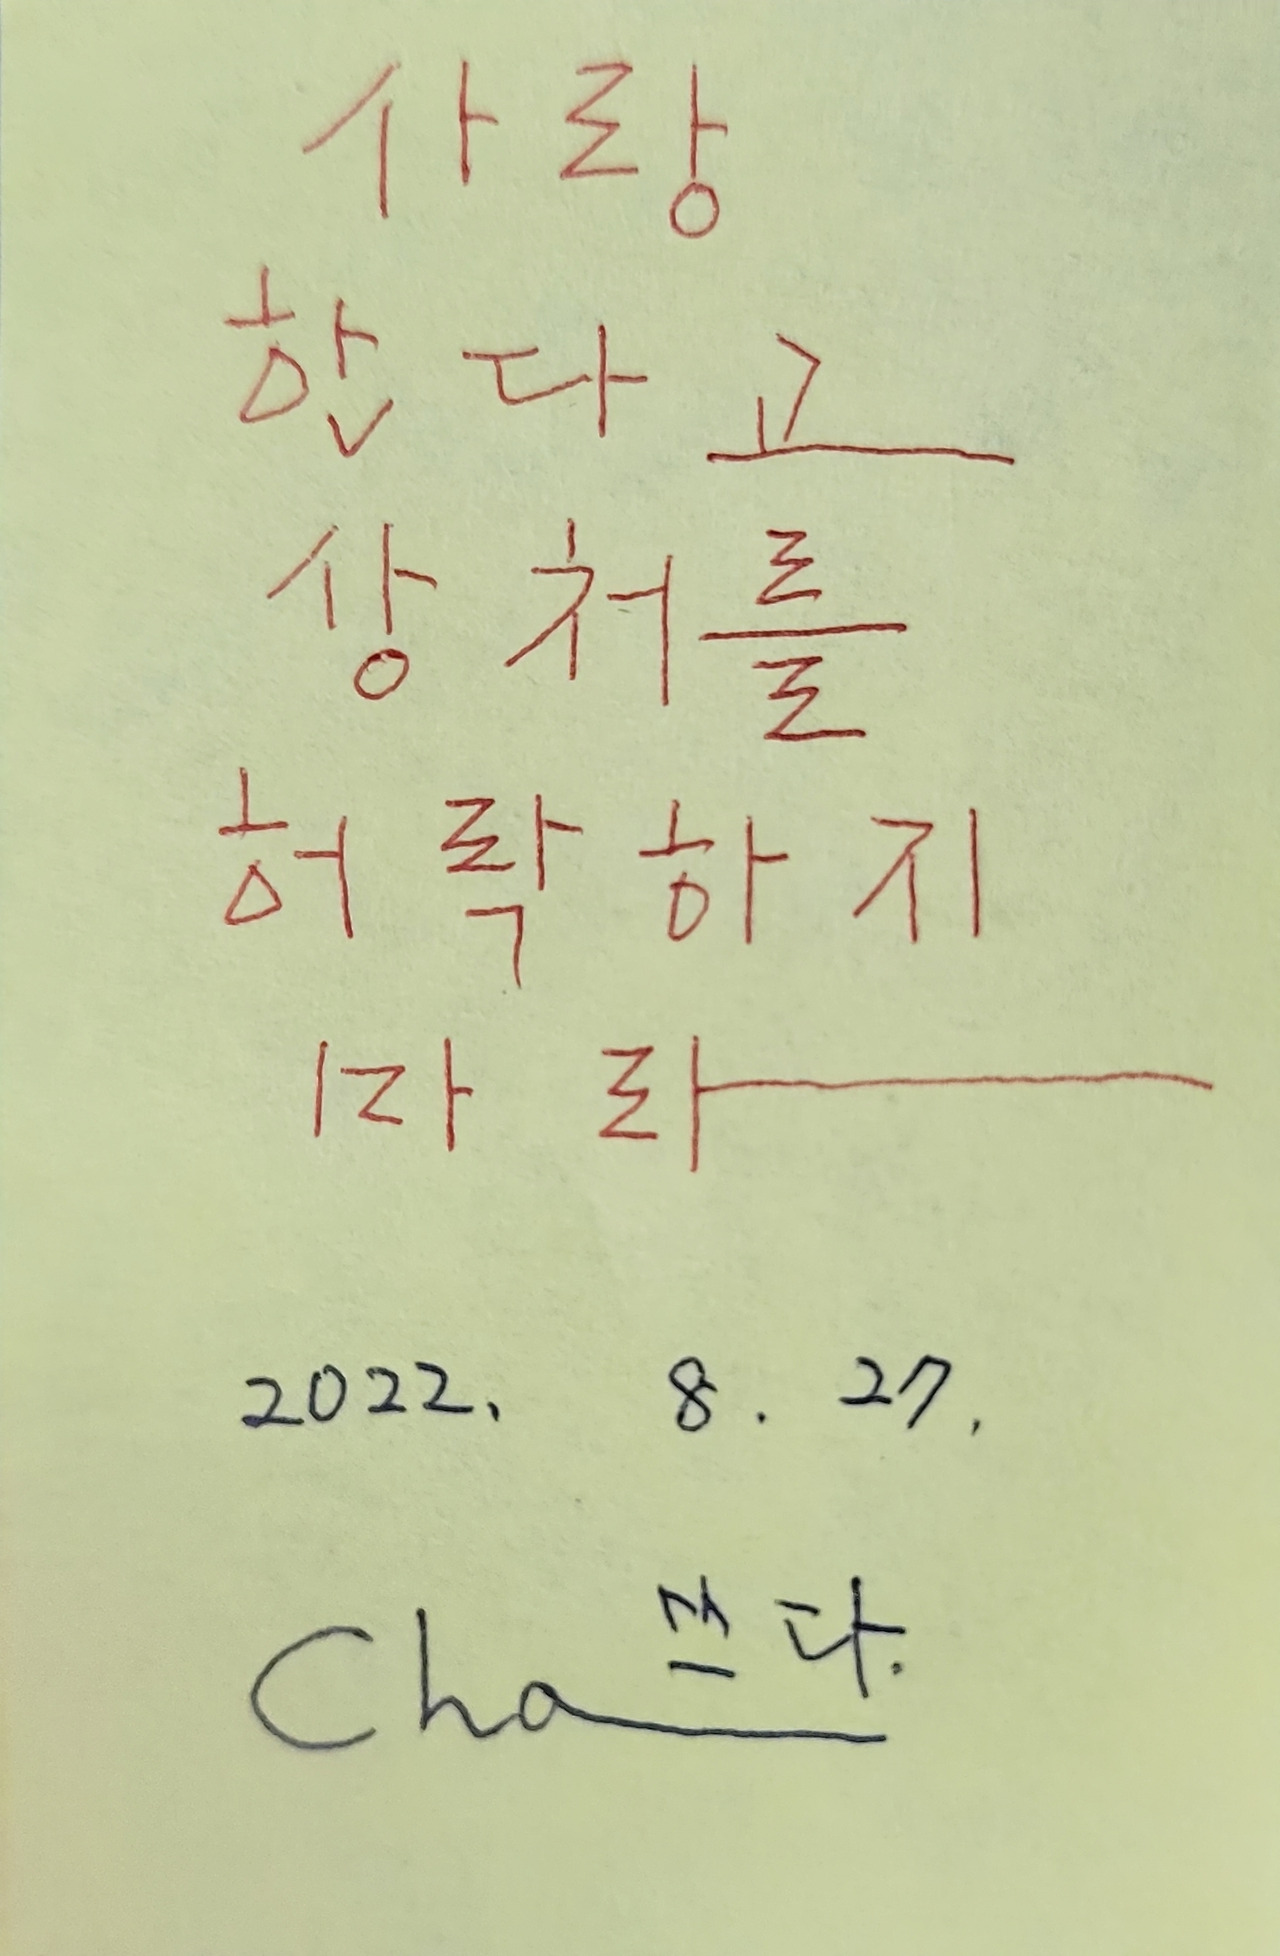 사랑
한다고
상처를
허락하지
마라
2022. 8. 27.
Cha 쓰다.